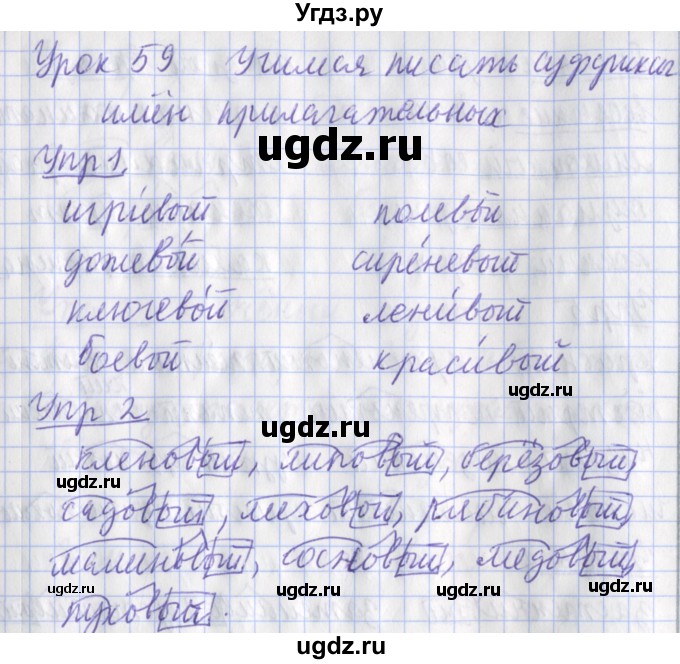 Угдз.ру
Урок 59 Учимся писать суффиксы
имён прилагательных
ugdz.ru
Упр 1.
игри́вый полево́й
дожево́й сире́невый
ключево́й лени́вый
боевой краси́вый
ugdz.ru
Упр 2
ugdz.ru
кленовый, липовый, берёзовый,
ugdz.ru
садовый, меховой, рябиновый,
малиновый, сосновый, медовый,
ugdz.ru ugdz.ru ugdz.ru
пуховый.
ugdz.ru